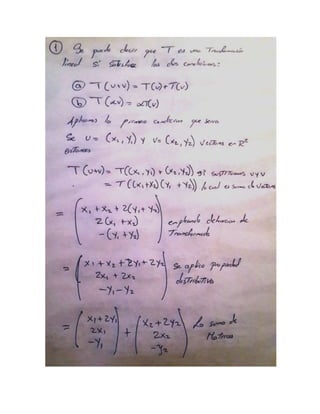 ① Se puede decir que T es una Transformación
lineal si satisface las dos condiciones:
ⓐ T(u+v) = T(u)+T(v)
ⓑ T(αu) = αT(u)
Aplicamos la primera condición que sería
Se u = (x₁, y₁) y v = (x₂, y₂) vectores en R²
entonces
T(u+v) = T((x₁, y₁) + (x₂, y₂)) si sustituimos u y v
= T((x₁+x₂) (y₁ + y₂)) lo cual es suma de Vectores
= ( x₁ + x₂ + 2(y₁ + y₂)
2(x₁ + x₂)
-(y₁ + y₂) ) empleando definición de Transformada
= ( x₁ + x₂ + 2y₁ + 2y₂
2x₁ + 2x₂
-y₁ - y₂ ) se aplica propiedad distributiva
= ( x₁ + 2y₁
2x₁
-y₁ ) + ( x₂ + 2y₂
2x₂
-y₂ ) La suma de Matrices